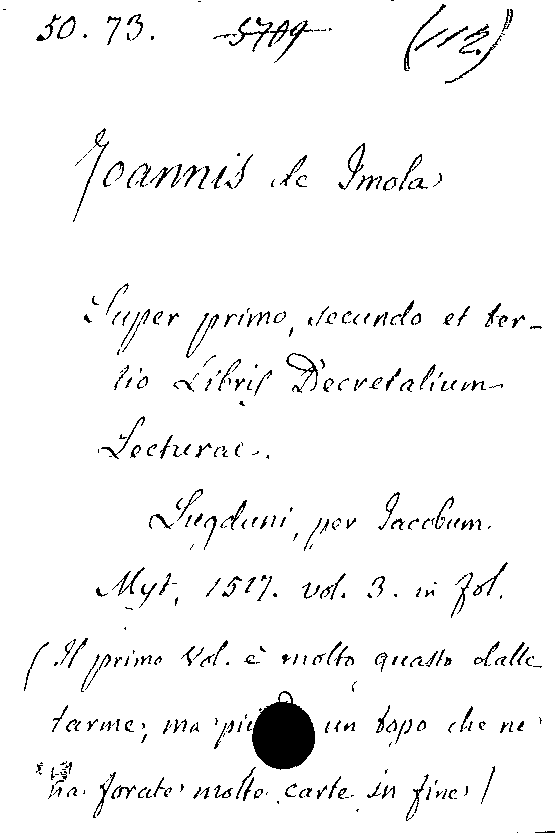 50. 73. 5709 (112.)
Joannis de Imola
Super primo, secundo et ter-
tio Libris Decretalium
Lecturae.
Lugduni, per Jacobum
Myt, 1517. vol. 3. in fol.
(Il primo Vol. è molto guasto dalle
tarme, ma più un topo che ne
ha forate molte carte in fine)